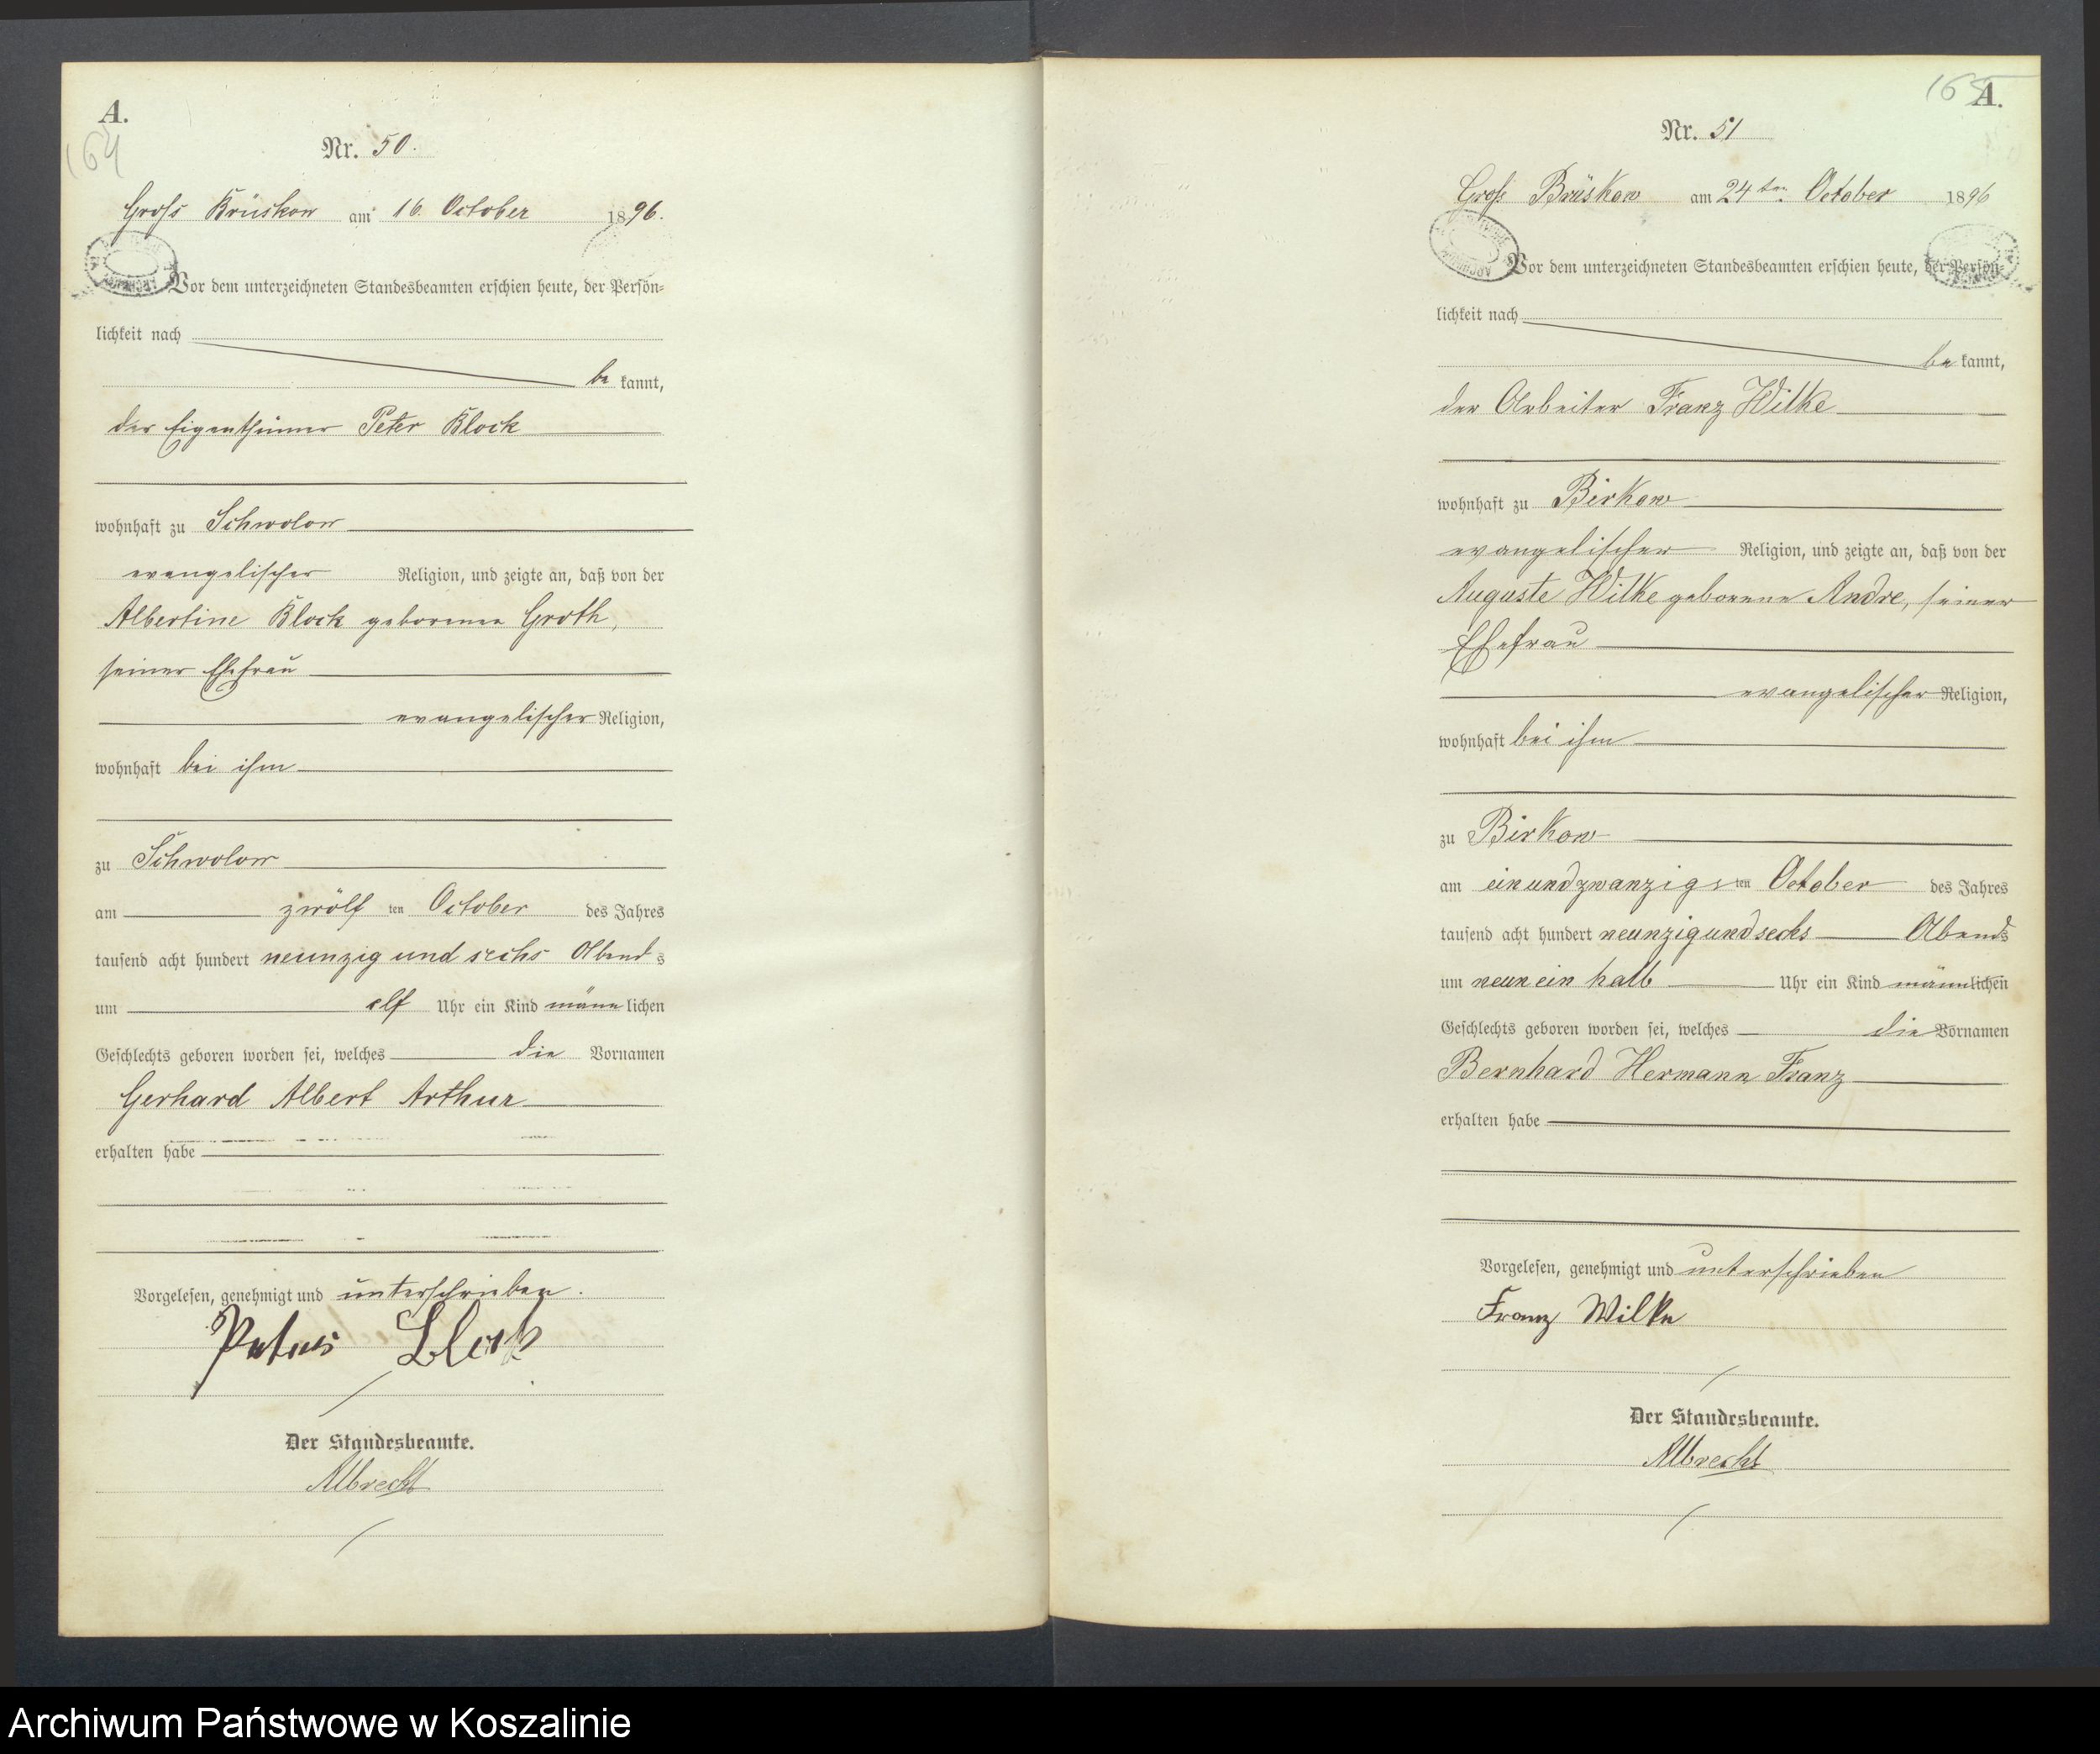 A.
164
Nr. 50.
Gross Brüskow am 16. October 1896.
Vor dem unterzeichneten Standesbeamten erschien heute, der Persön-
lichkeit nach
be kannt,
der Eigenthümer Peter Block
wohnhaft zu Schwolow
evangelischer Religion, und zeigte an, daß von der
Albertine Block geborenen Groth,
seiner Ehefrau
evangelischer Religion,
wohnhaft bei ihm
zu Schwolow
am zwölf ten October des Jahres
tausend acht hundert neunzig und sechs Abend s
um elf Uhr ein Kind männ lichen
Geschlechts geboren worden sei, welches die Vornamen
Gerhard Albert Arthur
erhalten habe
Vorgelesen, genehmigt und unterschrieben.
Block
Der Standesbeamte.
Albrecht
165
A.
Nr. 51
Groß Brüskow am 24ten October 1896
Vor dem unterzeichneten Standesbeamten erschien heute, der Persön-
lichkeit nach
be kannt,
der Arbeiter Franz Wilke
wohnhaft zu Birkow
evangelischer Religion, und zeigte an, daß von der
Auguste Wilke geborene Andre, seiner
Ehefrau
evangelischer Religion,
wohnhaft bei ihm
zu Birkow
am einundzwanzigsten October des Jahres
tausend acht hundert neunzigundsechs Abends
um neun ein halb Uhr ein Kind männlichen
Geschlechts geboren worden sei, welches die Vornamen
Bernhard Hermann Franz
erhalten habe
Vorgelesen, genehmigt und unterschrieben
Franz Wilke
Der Standesbeamte.
Albrecht
Archiwum Państwowe w Koszalinie